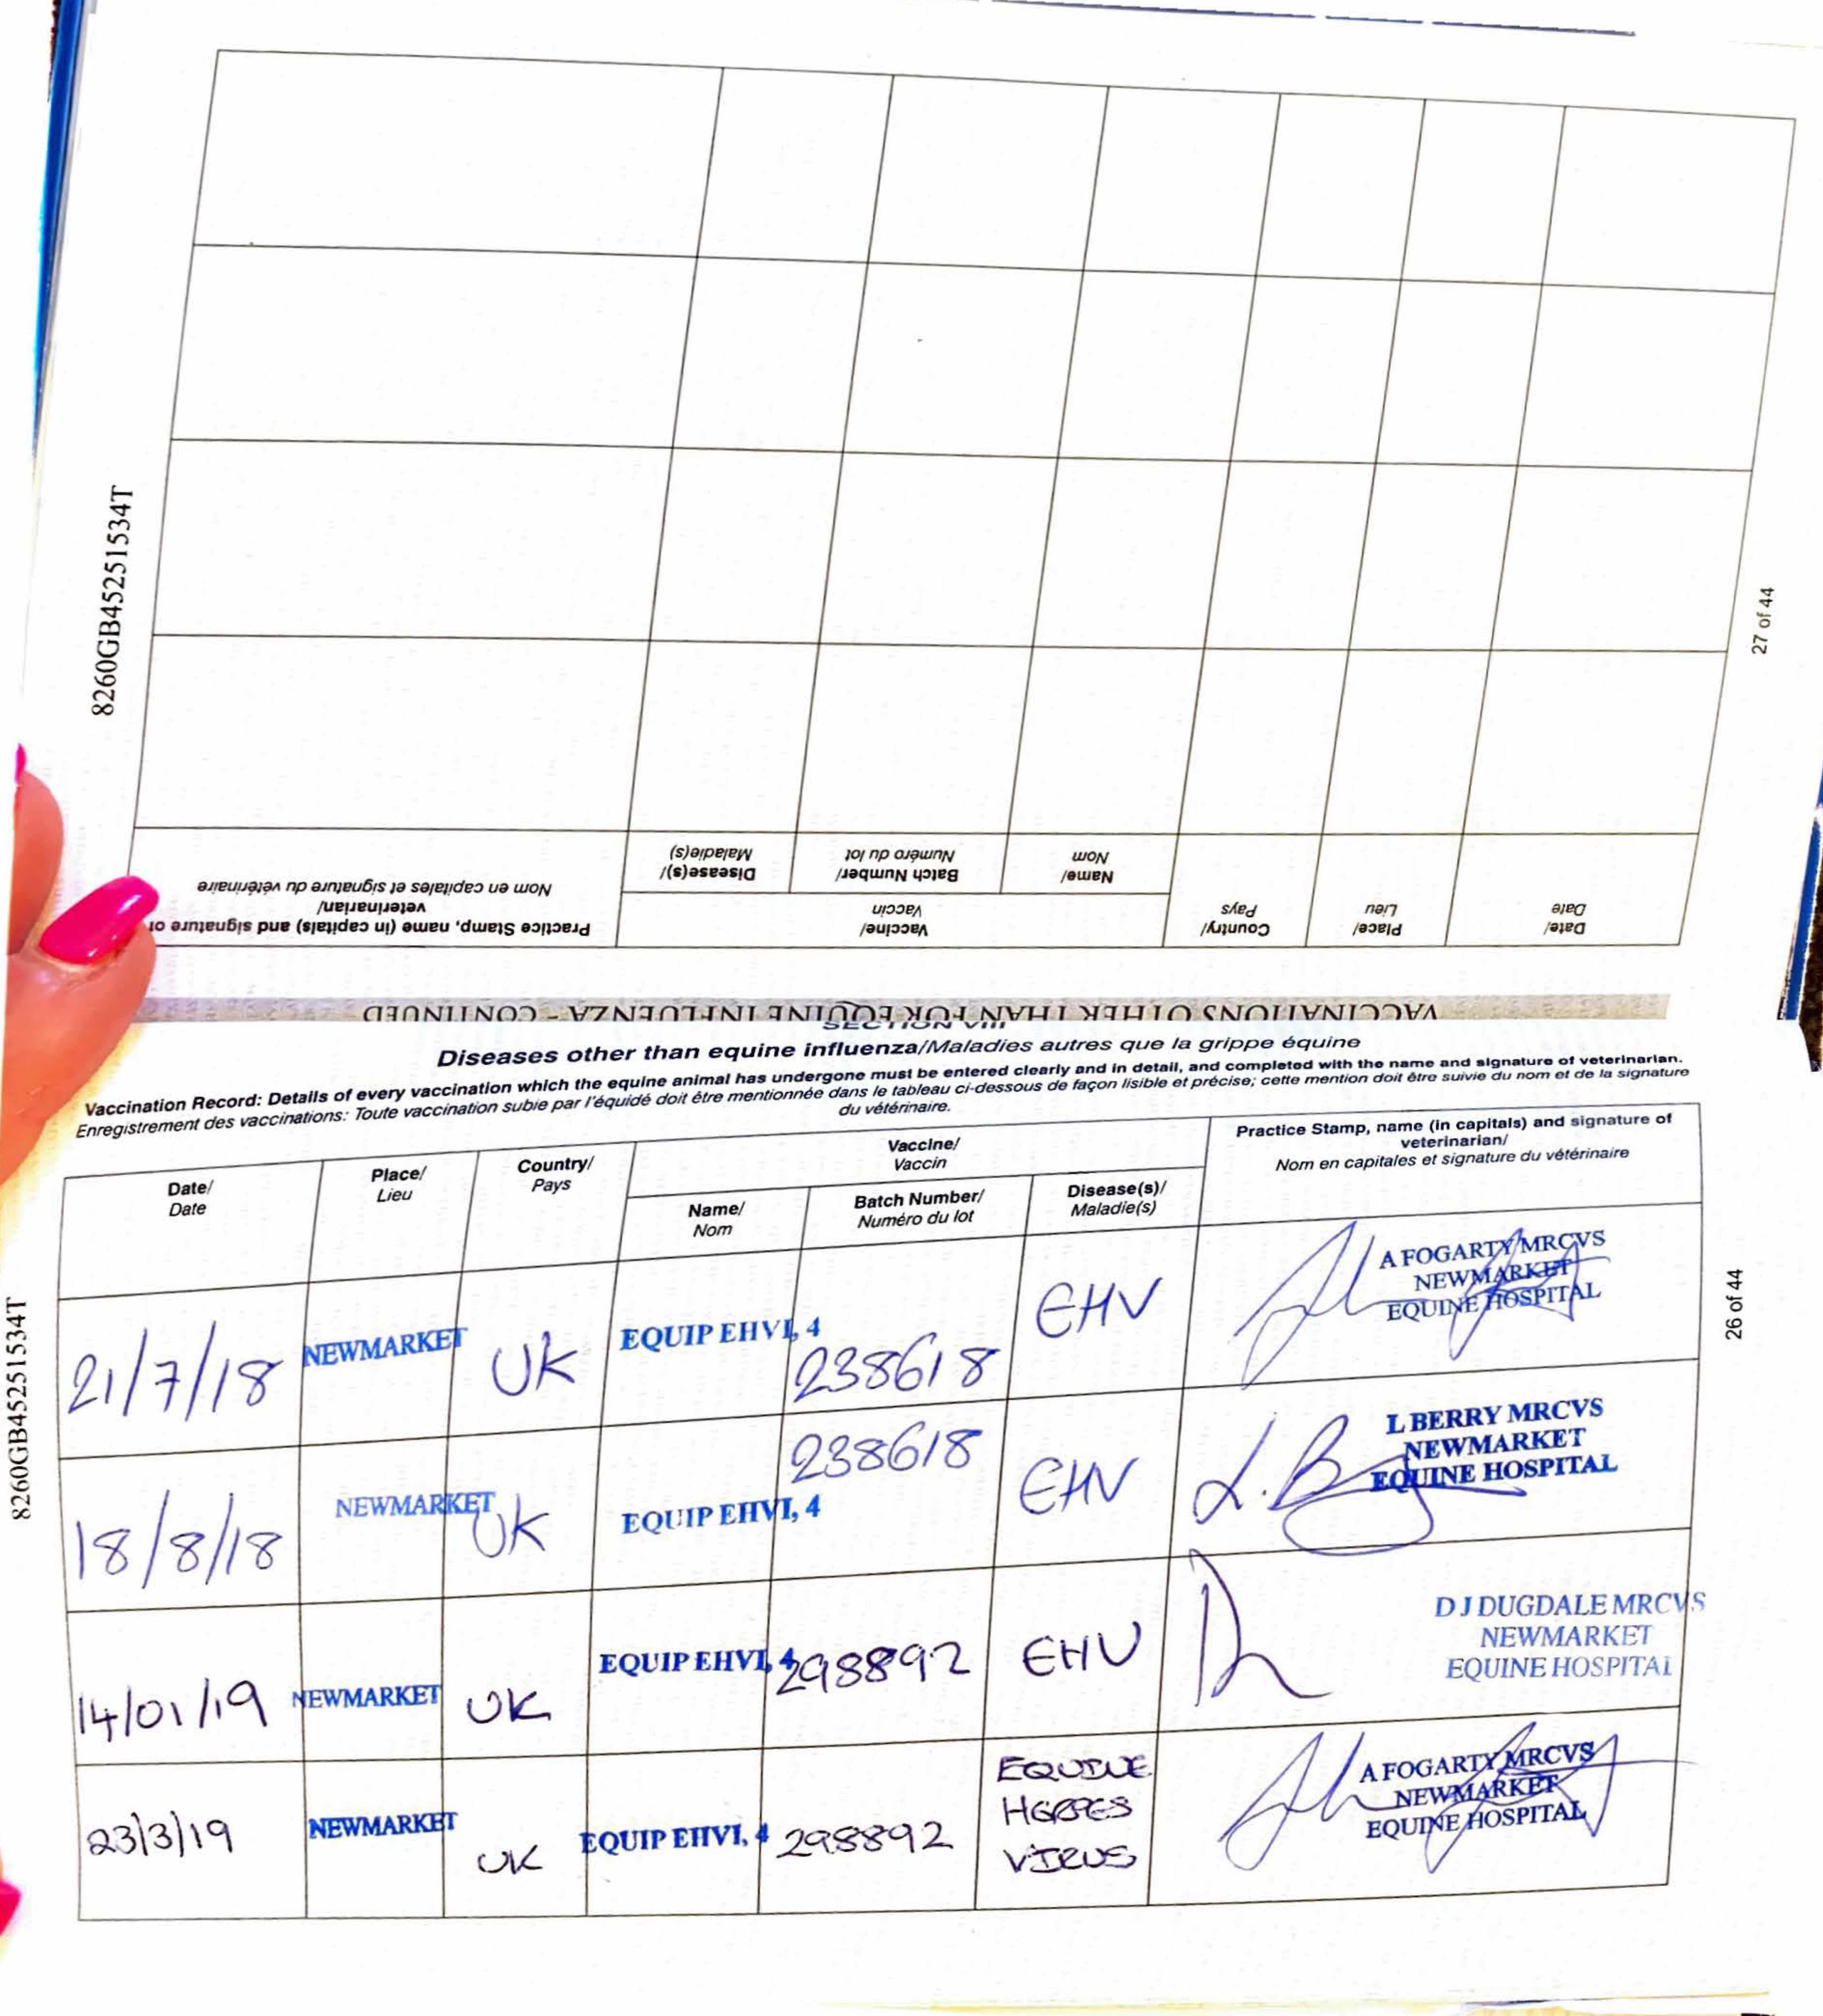 8260GB45251534T
27 of 44
Practice Stamp, name (in capitals) and signature of
veterinarian/
Nom en capitales et signature du vétérinaire
Vaccine/
Vaccin
Disease(s)/
Maladie(s)
Batch Number/
Numéro du lot
Name/
Nom
Country/
Pays
Place/
Lieu
Date/
Date
VACCINATIONS OTHER THAN FOR EQUINE INFLUENZA - CONTINUED
SECTION VIII
Diseases other than equine influenza/Maladies autres que la grippe équine
Vaccination Record: Details of every vaccination which the equine animal has undergone must be entered clearly and in detail, and completed with the name and signature of veterinarian.
Enregistrement des vaccinations: Toute vaccination subie par l'équidé doit être mentionnée dans le tableau ci-dessous de façon lisible et précise; cette mention doit être suivie du nom et de la signature
du vétérinaire.
Date/
Date
Place/
Lieu
Country/
Pays
Vaccine/
Vaccin
Name/
Nom
Batch Number/
Numéro du lot
Disease(s)/
Maladie(s)
Practice Stamp, name (in capitals) and signature of
veterinarian/
Nom en capitales et signature du vétérinaire
21/7/18 NEWMARKET UK EQUIP EHV1, 4 238618 EHV
A FOGARTY MRCVS
NEWMARKET
EQUINE HOSPITAL
18/8/18 NEWMARKET UK EQUIP EHV1, 4 238618 EHV
L. B
L BERRY MRCVS
NEWMARKET
EQUINE HOSPITAL
14/01/19 NEWMARKET UK EQUIP EHV1, 4 298892 EHV
D J DUGDALE MRCVS
NEWMARKET
EQUINE HOSPITAL
23/3/19 NEWMARKET UK EQUIP EHV1, 4 298892
EQUINE
HERPES
VIRUS
A FOGARTY MRCVS
NEWMARKET
EQUINE HOSPITAL
8260GB45251534T
26 of 44